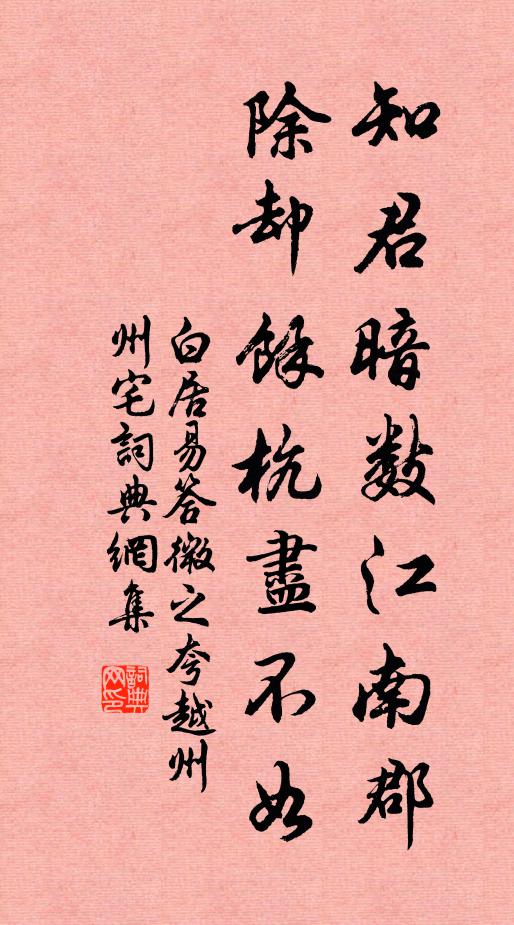 知君暗數江南郡
除却餘杭盡不如
白居易答微之夸越州
州宅詞典網集
詞典網印